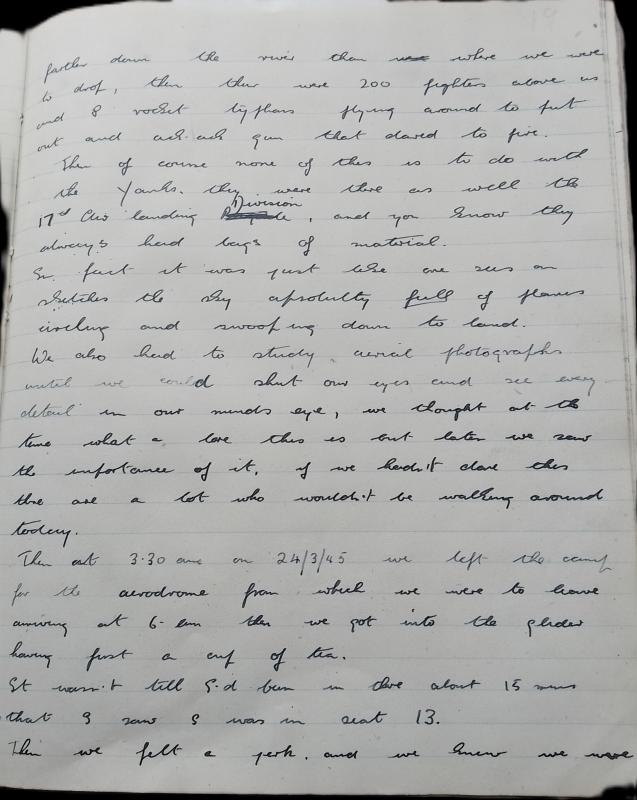 farther down the river than where we were
to drop, then ther were 200 fighters above us
and 8 rocket typhans flying around to put
out and ack-ack gun that dared to fire.
Then of course none of this is to do with
the Yanks. they were there as well the
17th Air landing Division, and you know they
always had bags of material.
In fact it was just like one sees on
sketches the sky apsolutly full of planes
circling and swooping down to land.
We also had to study aerial photographs
until we could shut our eyes and see every
detail in our minds eye, we thought at the
time what a lark this is but later we saw
the importance of it, if we hadn't done this
thre are a lot who wouldn't be walking around
today.
Then at 3.30 am on 24/3/45 we left the camp
for the aerodrome from which we were to leave
arriving at 6-am then we got into the glider
having first a cup of tea.
It wasn't till I'd been in thre about 15 mins
that I saw I was in seat 13.
Then we felt a jerk. and we knew we were